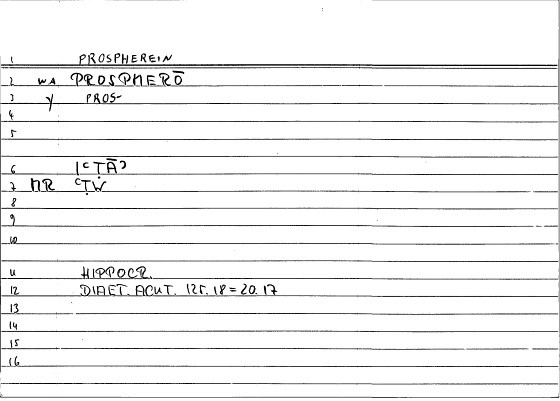 1 PROSPHEREIN
2 WA PROSPHERŌ
3 Y PROS-
4
5
6 IʿṬĀʾ
7 MR ʿṬW
8
9
10
11 HIPPOCR.
12 DIAET. ACUT. 125. 18 = 20. 17
13
14
15
16